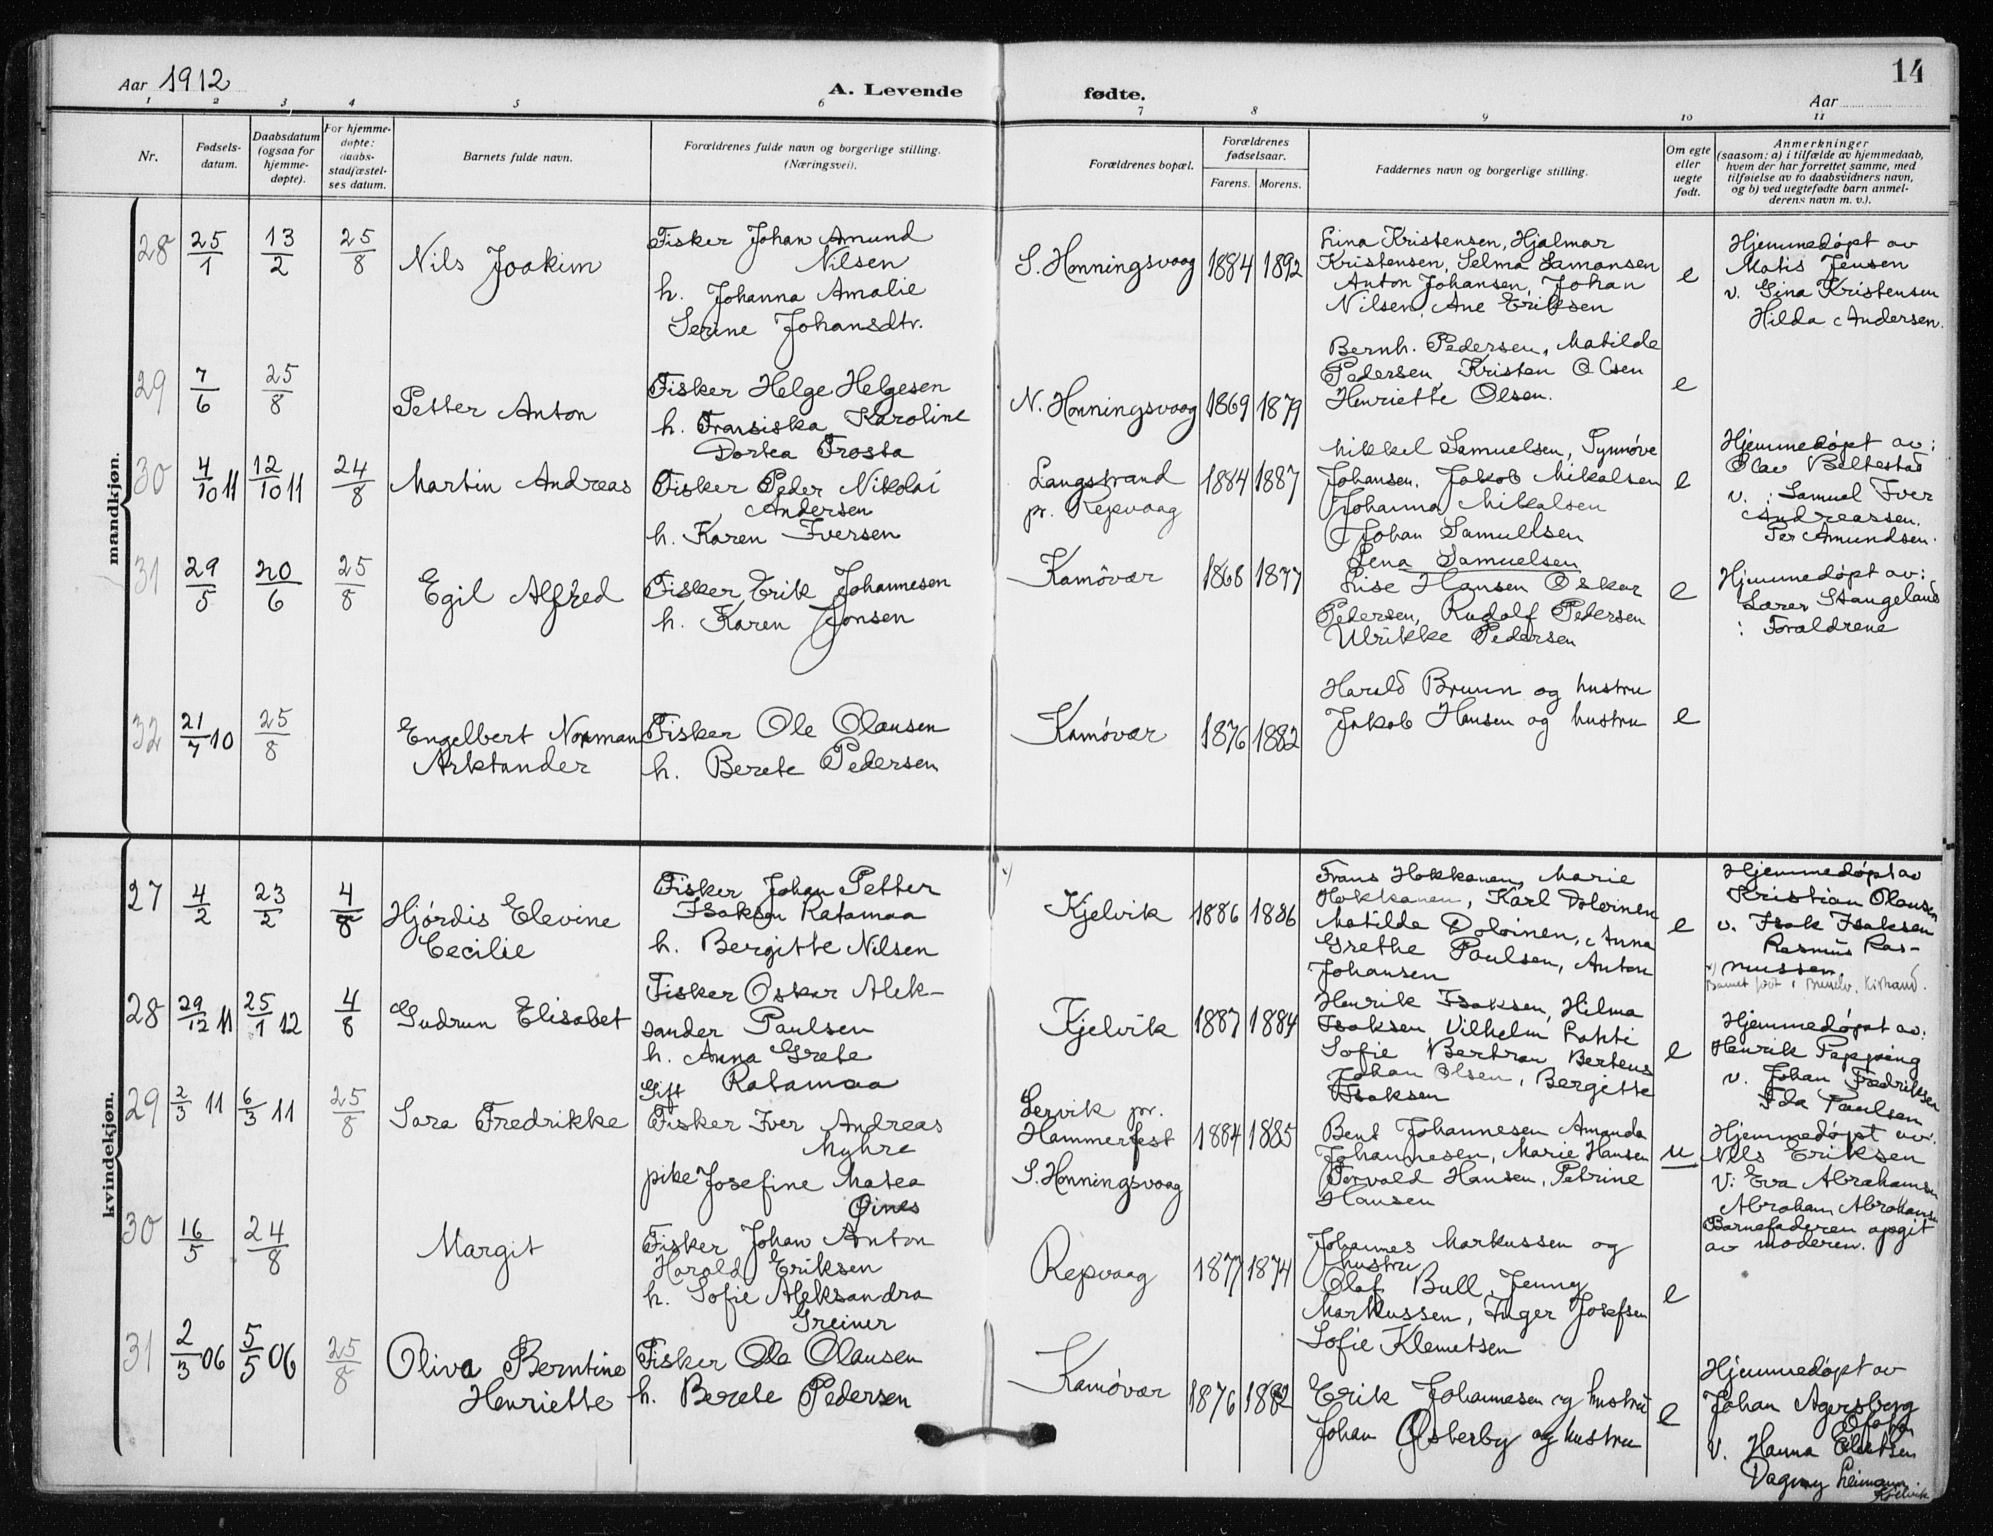 14
Aar 1912
A. Levende fødte.
Aar
1 2 3 4 5 6 7 8 9 10 11
Nr.
Fødsels-
datum.
Daabsdatum
(ogsaa for
hjemme-
døpte).
For hjemme-
døpte:
daabs-
stadfæstel-
ses datum.
Barnets fulde navn.
Forældrenes fulde navn og borgerlige stilling.
(Næringsvei).
Forældrenes bopæl.
Forældrenes
fødselsaar.
Farens. Morens.
Faddernes navn og borgerlige stilling.
Om egte
eller
uegte
født.
Anmerkninger
(saasom: a) i tilfælde av hjemmedaab,
hvem der har forrettet samme, med
tilføielse av to daabsvidners navn,
og b) ved uegtefødte barn anmel-
derens navn m. v.).
mandkjøn.
28 25/1 13/2 25/8
Nils Joakim
Fisker Johan Amund
Nilsen
h. Johanna Amalie
Serine Johansdtr.
S. Honningsvaag 1884 1892
Lina Kristensen, Hjalmar
Kristensen, Selma Samansen
Anton Johansen, Johan
Nilsen, Ane Eriksen
e
Hjemmedøpt av
Matis Jensen
v. Gina Kristensen
Hilda Andersen.
29 7/6 25/8
Petter Anton
Fisker Helge Helgesen
h. Fransiska Karoline
Dortea Frosta
N. Honningsvaag 1869 1879
Bernh. Pedersen, Matilde
Pedersen, Kristen Olsen
Henriette Olsen.
e
30 4/10 11 12/10 11 24/8
Martin Andreas
Fisker Peder Nikolai
Andersen
h. Karen Iversen
Langstrand
pr. Repvaag
1884 1887
Mikkel Samuelsen, Synnøve
Johansen, Jakob Mikalsen
Johanna Mikalsen
Johan Samuelsen
Lena Samuelsen
e
Hjemmedøpt av:
Olav Beltestad
v. : Samuel Iver
Andreassen.
Per Amundsen.
31 29/5 20/6 25/8
Egil Alfred
Fisker Erik Johannesen
h. Karen Jonsen
Kamøvær 1868 1877
Lise Hansen Oskar
Pedersen, Rudolf Pedersen
Ulrikke Pedersen
e
Hjemmedøpt av:
Lærer Stangeland
: Forældrene
32 21/7 10 25/8
Engelbert Norman
Arktander
Fisker Ole Olausen
h. Berete Pedersen
Kamøvær 1876 1882
Harald Bruun og hustru
Jakob Hansen og hustru
e
kvindekjøn.
27 4/2 23/2 4/8
Hjørdis Elevine
Cecilie
Fisker Johan Petter
Isaksen Ratamaa
h. Bergitte Nilsen
Kjelvik 1886 1886
Frans Hokkanen, Marie
Hokkanen, Karl Doloinen
Matilda Doloinen, Anna
Grethe Paulsen, Anton
Johansen
e
Hjemmedøpt av
Kristian Olausen
v. Isak Isaksen
Rasmus Ras-
mussen.
28 29/12 11 25/1 12 4/8
Gudrun Elisabet
Fisker Oskar Alek-
sander Paulsen
h. Anna Grete
Ratamaa
Kjelvik 1887 1884
Henrik Isaksen, Hilma
Isaksen, Vilhelm Lahti
Sofie Bertrau Berteus
Johan Olsen, Bergitte
Isaksen
e
Hjemmedøpt av:
Henrik Peppoing
v. Johan Fredriksen
Ida Paulsen
29 2/3 11 6/3 11 25/8
Sara Fredrikke
Gift
Fisker Iver Andreas
Myhre
pike Josefine Matea
Øines
Lervik pr.
Hammerfest
S. Honningsvaag
1884 1885
Bent Johannesen Amanda
Johannesen, Marie Hansen
Torvald Hansen, Petrine
Hansen
u
Hjemmedøpt av:
Nils Eriksen
v: Eva Abrahamsen
Abraham Abrahamsen
Barnefaderen opgit
av moderen.
30 16/5 24/8
Margit
Fisker Johan Anton
Harald Eriksen
h. Sofie Aleksandra
Greiner
Repvaag 1877 1874
Johannes Markussen og
hustru
Olaf Bull, Jenny
Markussen, Inger Josefsen
Sofie Klemetsen
e
31 2/3 06 5/5 06 25/8
Oliva Berntine
Henriette
Fisker Ole Olausen
h. Berete Pedersen
Kamøvær 1876 1882
Erik Johannesen og hustru
Johan Østerby og hustru
e
Hjemmedøpt av
Johan Agersborg
v. Hanna Eilertsen
Dagny Leimann
Kjelvik